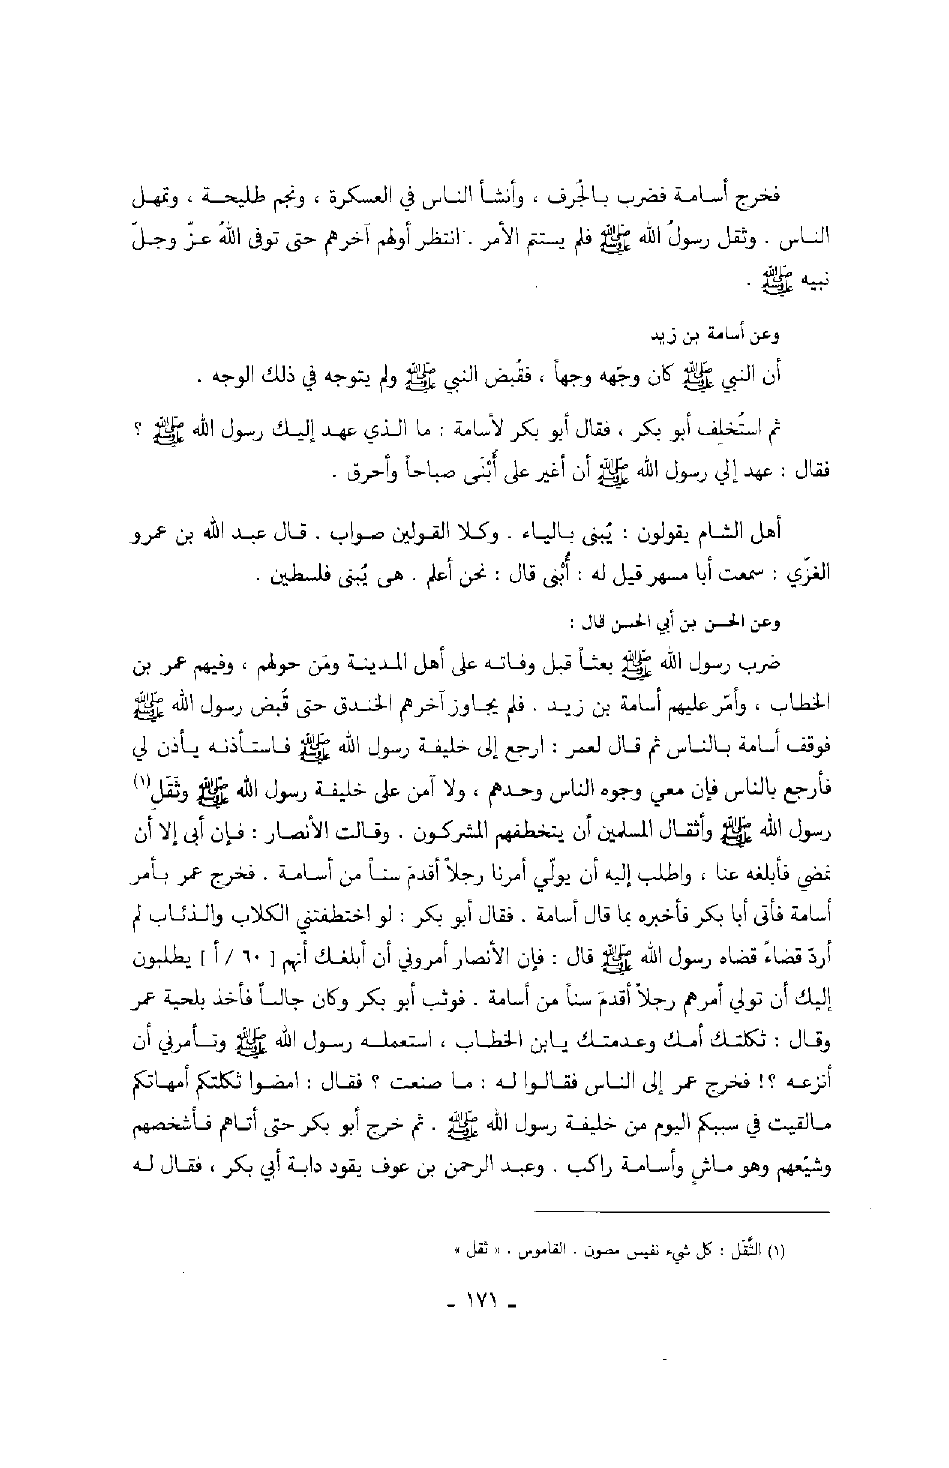 فخرج أسامة فضرب بالجُرف ، وأنشأ الناس في العسكرة ، ونجم طليحة ، وتمهل
الناس . وثقل رسولُ الله ﷺ فلم يستتم الأمر . انتظر أولهم آخرهم حتى توفى اللهُ عزّ وجلّ
نبيه ﷺ .
وعن أسامة بن زيد
أن النبي ﷺ كان وجّهه وجهاً ، فقُبض النبي ﷺ ولم يتوجه في ذلك الوجه .
ثم استُخلف أبو بكر ، فقال أبو بكر لأسامة : ما الذي عهد إليك رسول الله ﷺ ؟
فقال : عهد إلي رسول الله ﷺ أن أغير على أُبْنَى صباحاً وأحرق .
أهل الشام يقولون : يُبنى بالياء . وكلا القولين صواب . قال عبد الله بن عمرو
الغزّي : سمعت أبا مسهر قيل له : أُبْنى قال : نحن أعلم . هى يُبنى فلسطين .
وعن الحسن بن أبي الحسن قال :
ضرب رسول الله ﷺ بعثاً قبل وفاته على أهل المدينة ومَن حولهم ، وفيهم عمر بن
الخطاب ، وأمّر عليهم أسامة بن زيد . فلم يجاوز آخرهم الخندق حتى قُبض رسول الله ﷺ
فوقف أسامة بالناس ثم قال لعمر : ارجع إلى خليفة رسول الله ﷺ فاستأذنه يأذن لي
فأرجع بالناس فإن معي وجوه الناس وحدهم ، ولا آمن على خليفة رسول الله ﷺ وثَقَلِ(١)
رسول الله ﷺ وأثقال المسلمين أن يتخطفهم المشركون . وقالت الأنصار : فإن أبى إلا أن
نمضي فأبلغه عنا ، واطلب إليه أن يولّي أمرنا رجلاً أقدمَ سناً من أسامة . فخرج عمر بأمر
أسامة فأتى أبا بكر فأخبره بما قال أسامة . فقال أبو بكر : لو اختطفتني الكلاب والذئاب لم
أردّ قضاءً قضاه رسول الله ﷺ قال : فإن الأنصار أمروني أن أبلغك أنهم [ ٦٠ / أ ] يطلبون
إليك أن تولي أمرهم رجلاً أقدمَ سناً من أسامة . فوثب أبو بكر وكان جالساً فأخذ بلحية عمر
وقال : ثكلتك أمك وعدمتك يابن الخطاب ، استعمله رسول الله ﷺ وتأمرني أن
أنزعه ؟! فخرج عمر إلى الناس فقالوا له : ما صنعت ؟ فقال : امضوا ثكلتكم أمهاتكم
مالقيت في سببكم اليوم من خليفة رسول الله ﷺ . ثم خرج أبو بكر حتى أتاهم فأشخصهم
وشيّعهم وهو ماشٍ وأسامة راكب . وعبد الرحمن بن عوف يقود دابة أبي بكر ، فقال له
(١) الثَّقَل : كل شيء نفيس مصون . القاموس . « ثقل »
- ١٧١ -